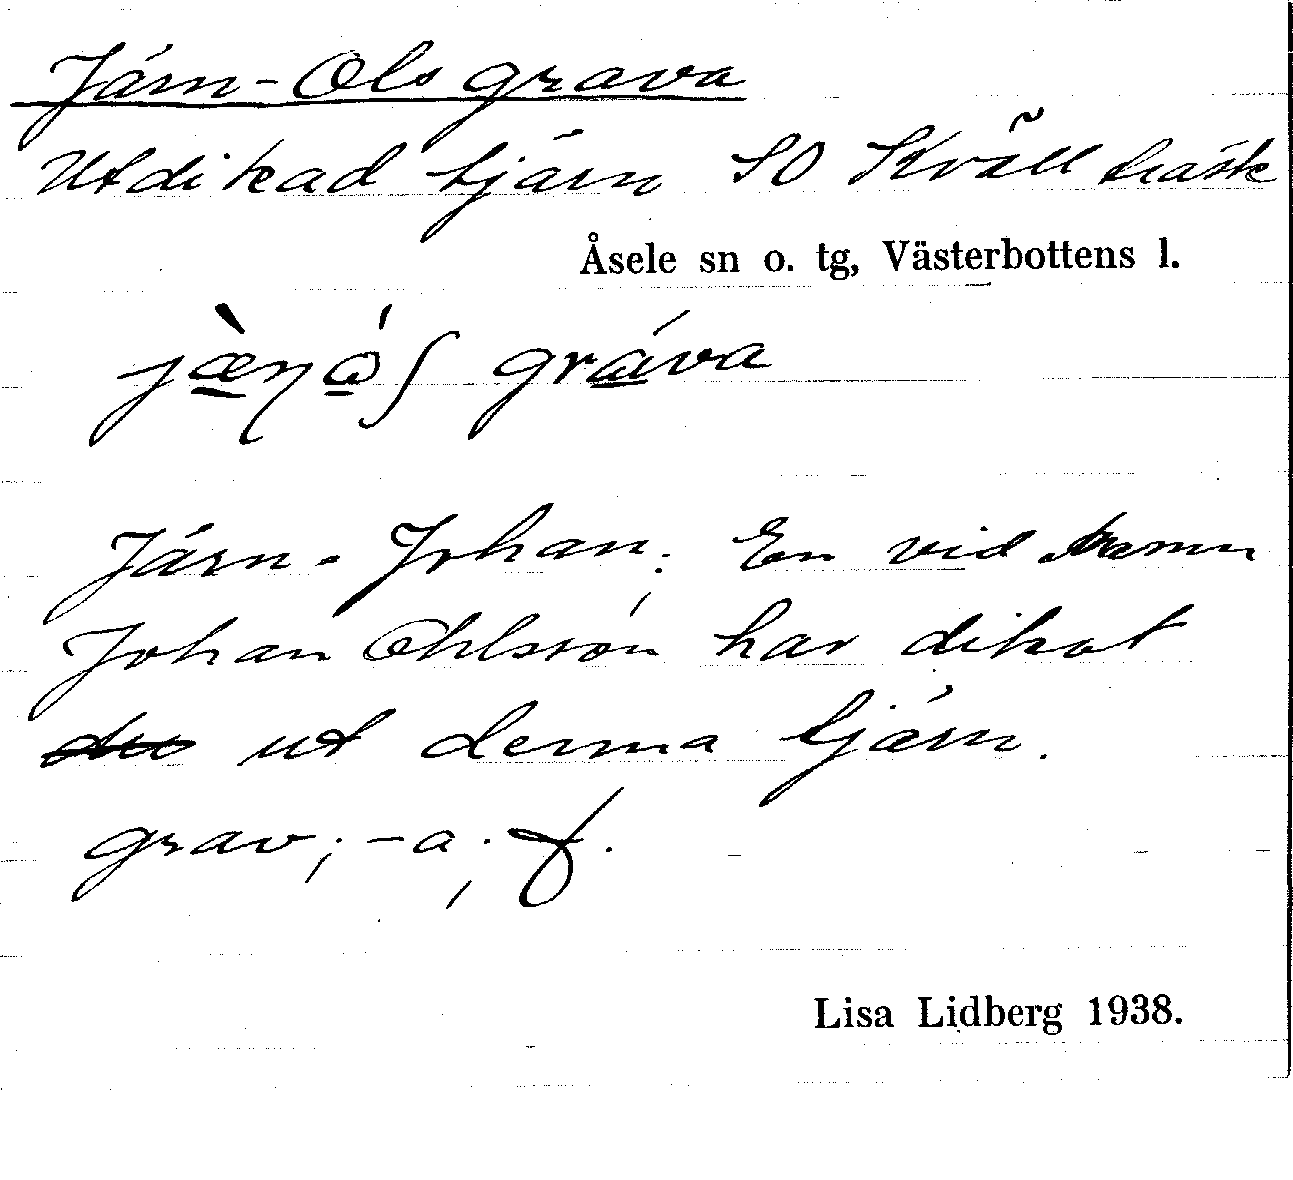 Järn-Ols grava
Utdikad tjärn SO Kvällträsk
Åsele sn o. tg, Västerbottens l.
gráva
Järn-Johan: En vid namn
Johan Ohlsson har dikat
ut denna tjärn.
grav, -a, f.
Lisa Lidberg 1938.